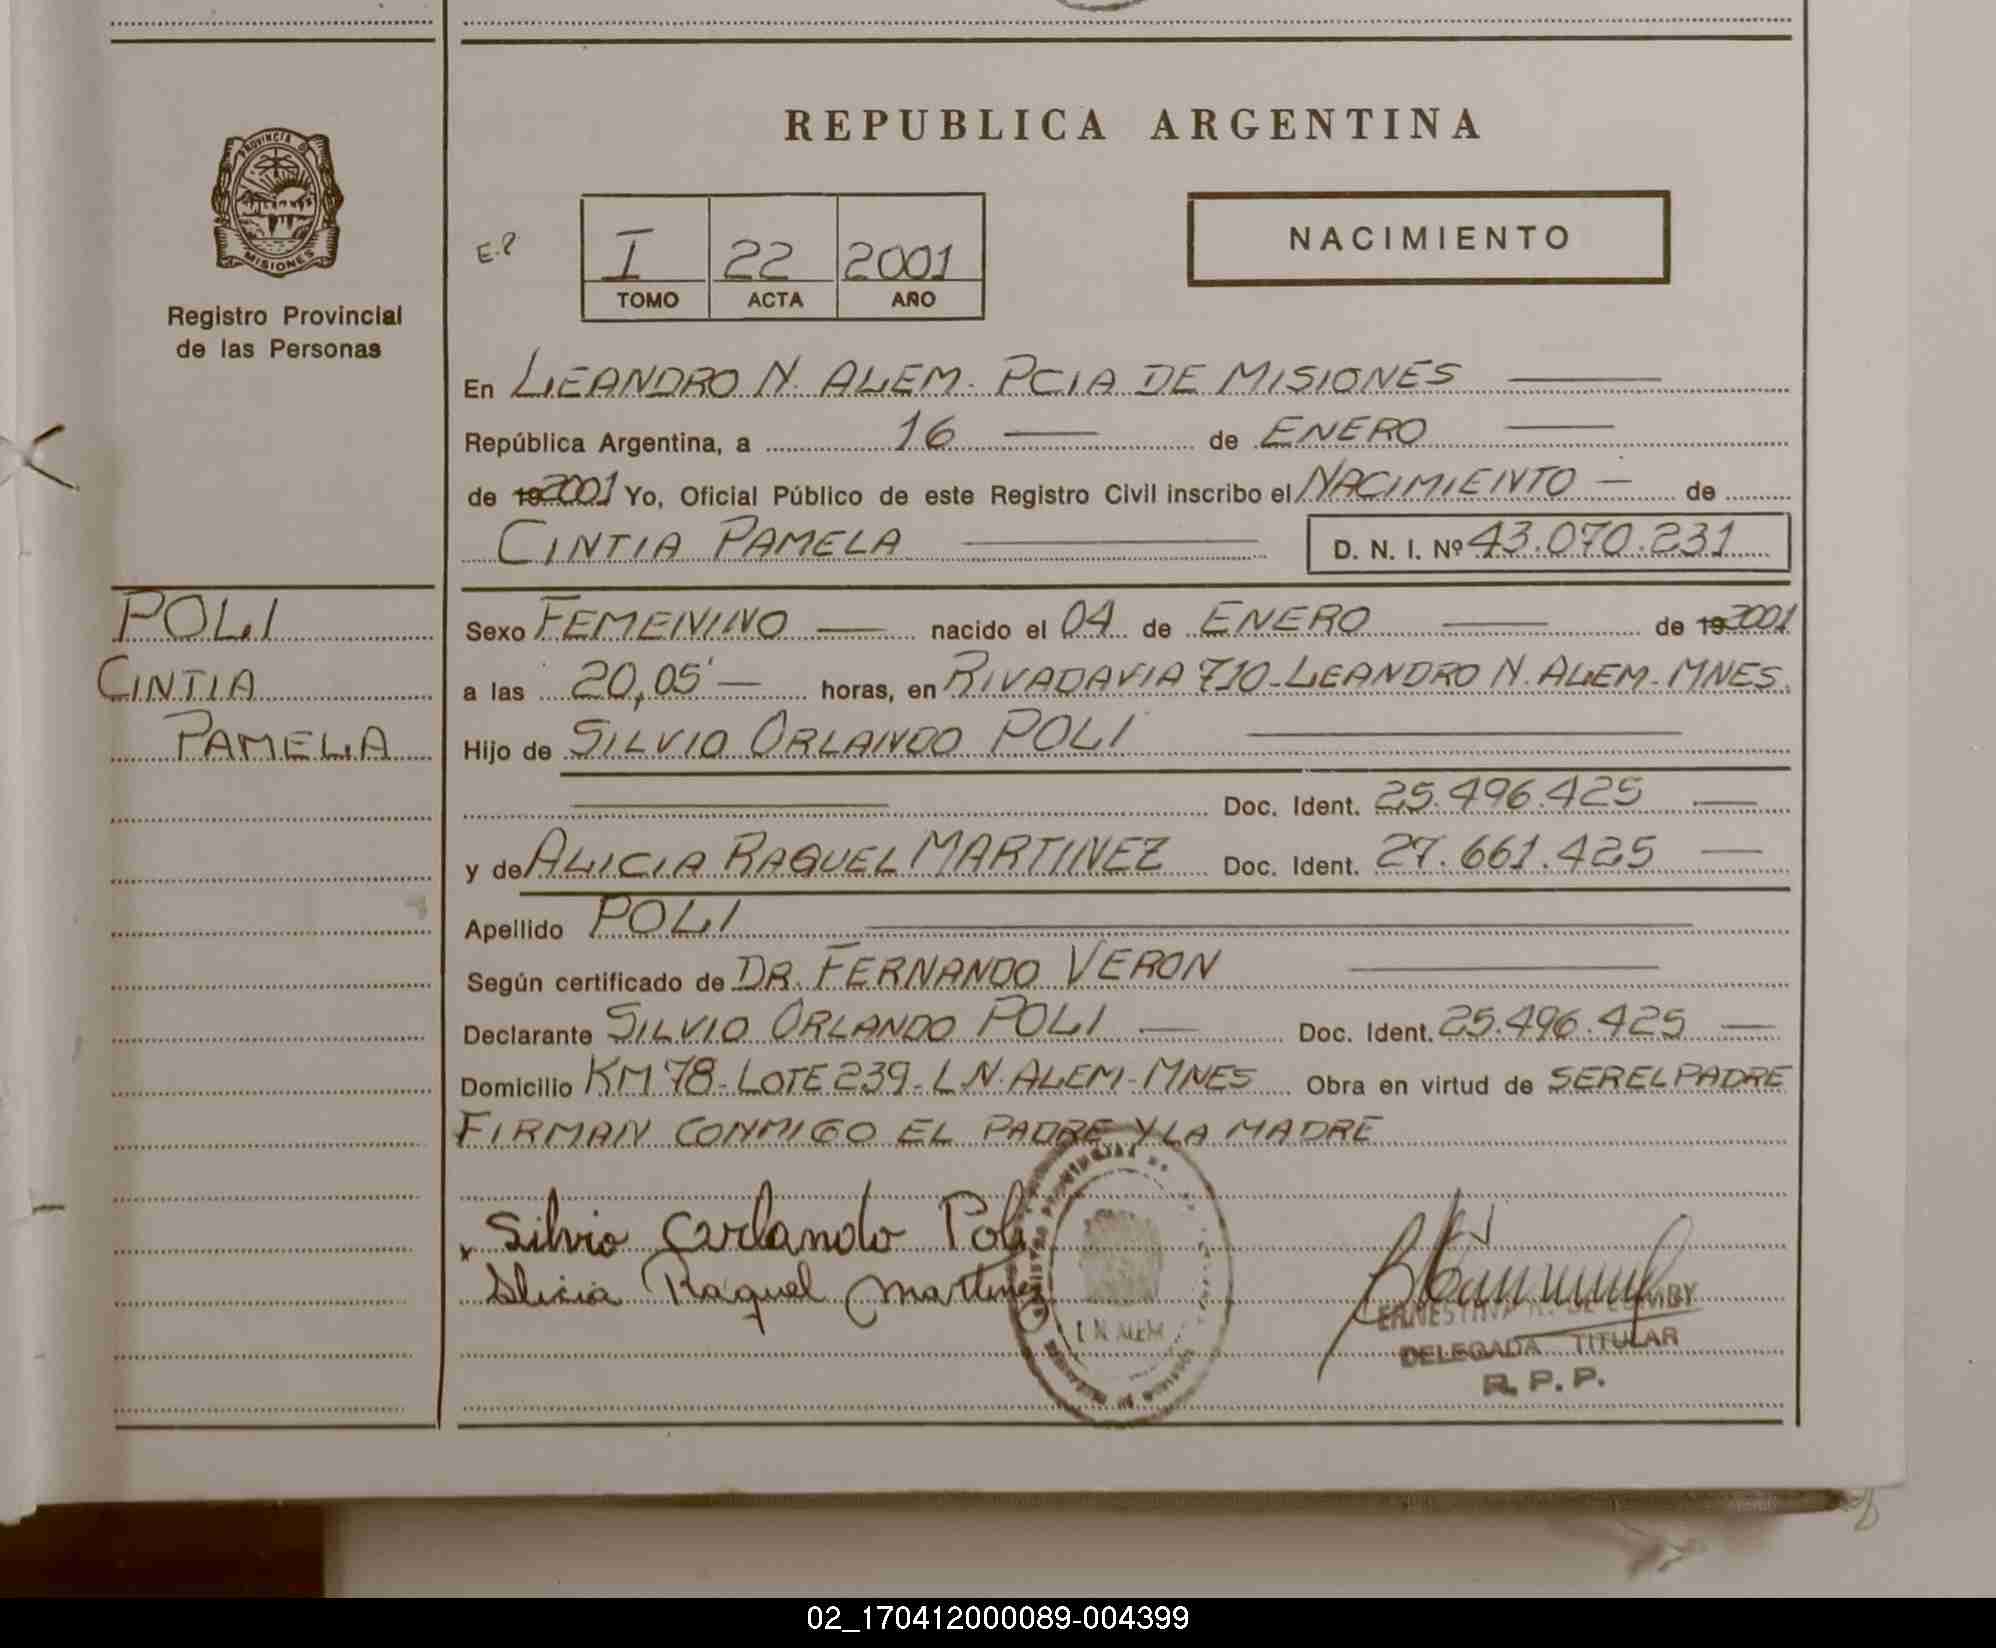 REPUBLICA ARGENTINA
PROVINCIA D
MISIONES
Registro Provincial
de las Personas
E.P
I 22 2001
TOMO ACTA AÑO
NACIMIENTO
En LEANDRO N. ALEM. PCIA DE MISIONES
República Argentina, a 16 de ENERO
de 192001 Yo, Oficial Público de este Registro Civil inscribo el NACIMIENTO de
CINTIA PAMELA D. N. I. Nº 43.070.231
POLI
CINTIA
PAMELA
Sexo FEMENINO nacido el 04 de ENERO de 192001
a las 20,05' horas, en RIVADAVIA 710 - LEANDRO N. ALEM - MNES.
Hijo de SILVIO ORLANDO POLI
Doc. Ident. 25.496.425
y de ALICIA RAQUEL MARTINEZ Doc. Ident. 27.661.425
Apellido POLI
Según certificado de DR. FERNANDO VERON
Declarante SILVIO ORLANDO POLI Doc. Ident. 25.496.425
Domicilio KM 78 - LOTE 239 - L.N. ALEM - MNES Obra en virtud de SER EL PADRE
FIRMAN CONMIGO EL PADRE Y LA MADRE
Silvio Orlando Poli
Alicia Raquel Martinez
L N ALEM
DELEGADA TITULAR
R. P. P.
02_170412000089-004399